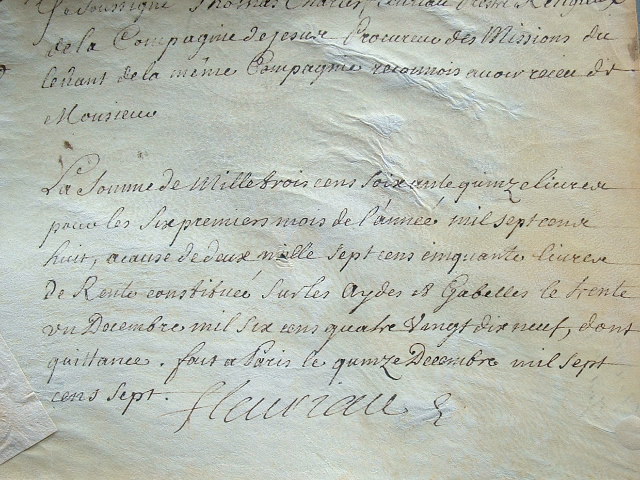 Je soussigné Thomas Charles fleuriau Prestre Religieux
de la Compagnie de jesus Procureur des Missions du
levant de la même Compagnie reconnois avoir receu de
Monsieur
La Somme de Mille trois cens soixante quinze livres
pour les six premiers mois de l'année mil sept cens
huit, a cause de deux mille sept cens cinquante livres
de Rente constituée sur les Aydes et Gabelles le trente
un Decembre mil six cens quatre vingt dix neuf, dont
quittance. fait a Paris le quinze Decembre mil sept
cens sept. fleuriau